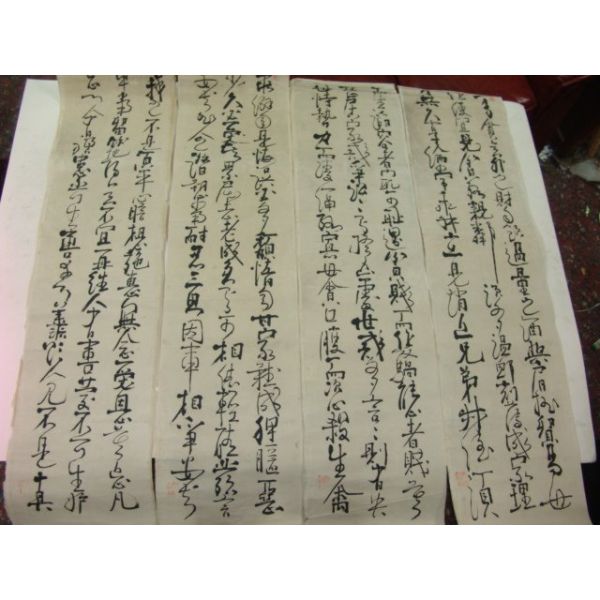 意外之財勿飲過量之酒與肩挑貿易毋
佔便宜見窮苦親鄰須多溫卹刻薄成家理
無久享倫常乖舛立見消亡兄弟叔侄須
容者最可恥遇貧窮而作驕態者賤莫
甚居家戒爭訟訟則終凶處世戒多言言則有失
恃勢力而凌逼孤寡毋貪口腹而恣殺生禽
乖僻自是悔誤必多頹惰自甘家道難成狎暱惡
少久必受其累屈志老成急可相依輕聽發言
安知非人之譖訴當忍耐三思因事相爭安知
我之不是宜平心暗想施惠無念受恩莫忘凡
事當留餘地得意不宜再往人有喜慶不可生妒
忌心人有禍患不可生喜幸心善欲人見不是真